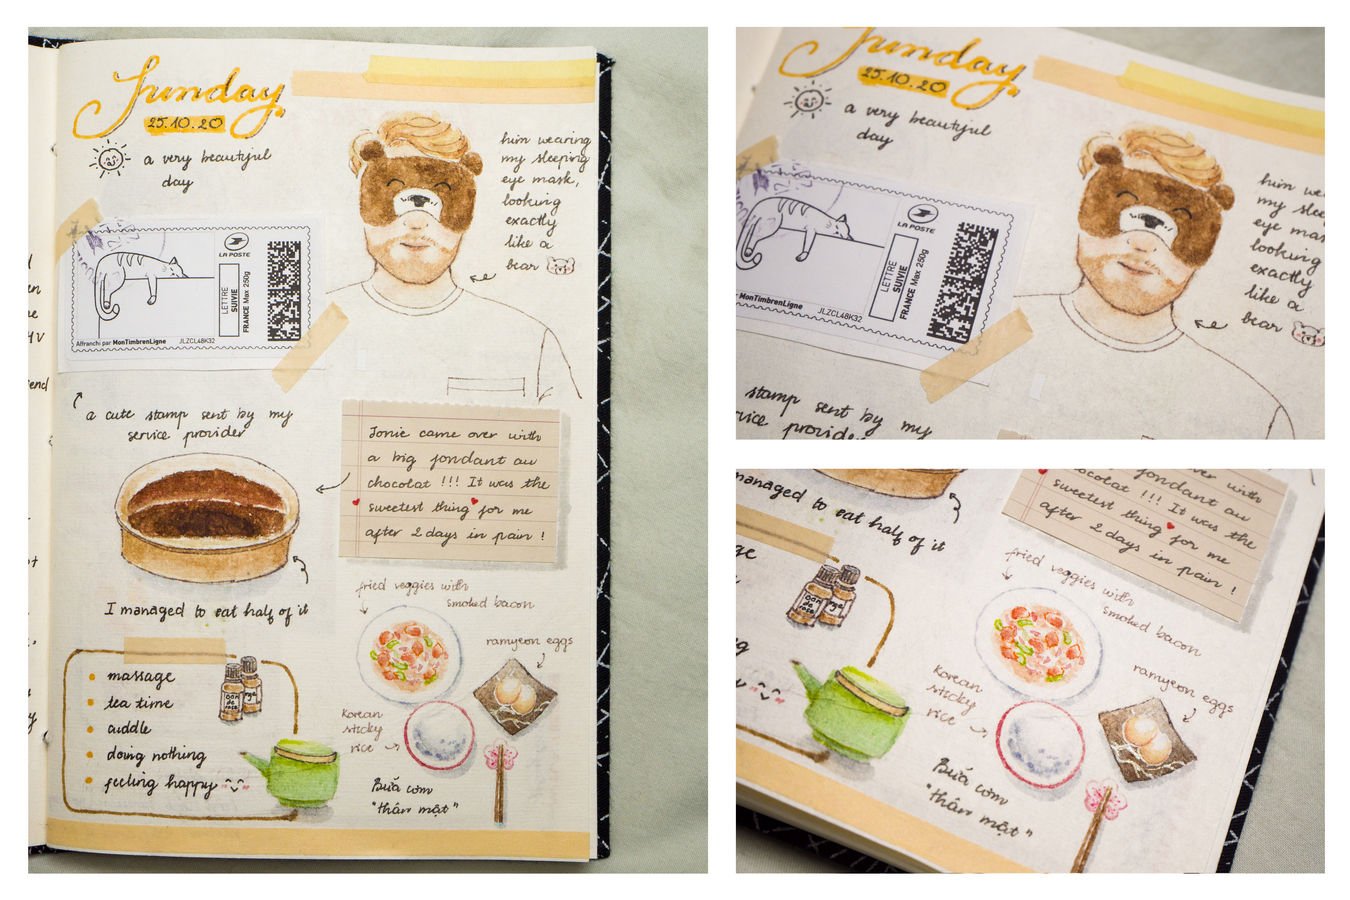 Sunday
25.10.20
a very beautiful
day
him wearing
my sleeping
eye mask,
looking
exactly
like a
bear
LA POSTE
LETTRE
SUIVIE
FRANCE Max 250g
Affranchi par MonTimbrenLigne
JLZCL48K32
a cute stamp sent by my
service provider
Tonie came over with
a big fondant au
chocolat !!! It was the
sweetest thing for me
after 2 days in pain !
I managed to eat half of it
massage
tea time
cuddle
doing nothing
feeling happy
fried veggies with
smoked bacon
ramyeon eggs
Korean
sticky
rice
Bữa cơm
"thân mật"
Sunday
25.10.20
a very beautiful
day
him
my
eye
looking
exactly
like a
bear
LA POSTE
LETTRE
SUIVIE
FRANCE Max 250g
MonTimbrenLigne
JLZCL48K32
stamp sent by my
provider
with
fondant au
It was the
sweetest thing for me
after 2 days in pain !
managed to eat half of it
fried veggies with
smoked bacon
ramyeon eggs
Korean
sticky
rice
Bữa cơm
"thân mật"